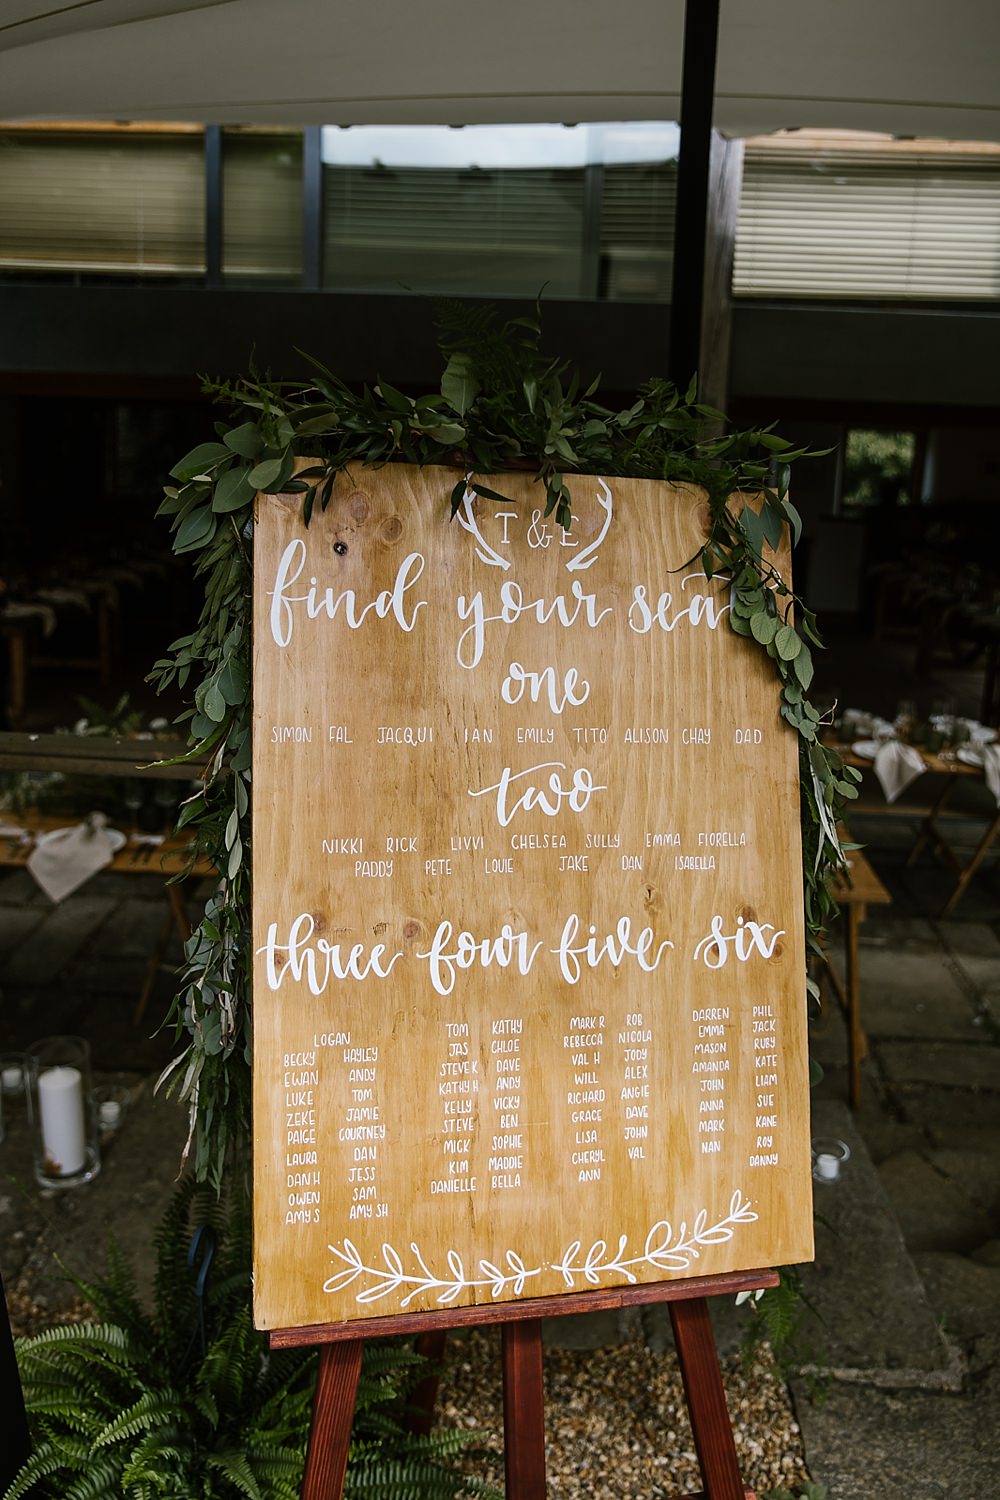 T & E
find your sea
one
SIMON FAL JACQUI IAN EMILY TITO ALISON CHAY DAD
two
NIKKI RICK LIVVI CHELSEA SULLY EMMA FIORELLA
PADDY PETE LOUIE JAKE DAN ISABELLA
three four five six
LOGAN
BECKY HAYLEY
EWAN ANDY
LUKE TOM
ZEKE JAMIE
PAIGE COURTNEY
LAURA DAN
DAN H JESS
OWEN SAM
AMY S AMY SH
TOM KATHY
JAS CHLOE
STEVE K DAVE
KATHY H ANDY
KELLY VICKY
STEVE BEN
MICK SOPHIE
KIM MADDIE
DANIELLE BELLA
MARK R ROB
REBECCA NICOLA
VAL H JODY
WILL ALEX
RICHARD ANGIE
GRACE DAVE
LISA JOHN
CHERYL VAL
ANN
DARREN PHIL
EMMA JACK
MASON RUBY
AMANDA KATE
JOHN LIAM
ANNA SUE
MARK KANE
NAN ROY
DANNY